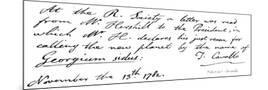 At the R. Society a letter was read
from Mr. Herschel to the President, in
which Mr. H. declares his just reason for
calling the new planet by the name of
Georgium sidus:
T. Cavallo
November the 13th 1782.